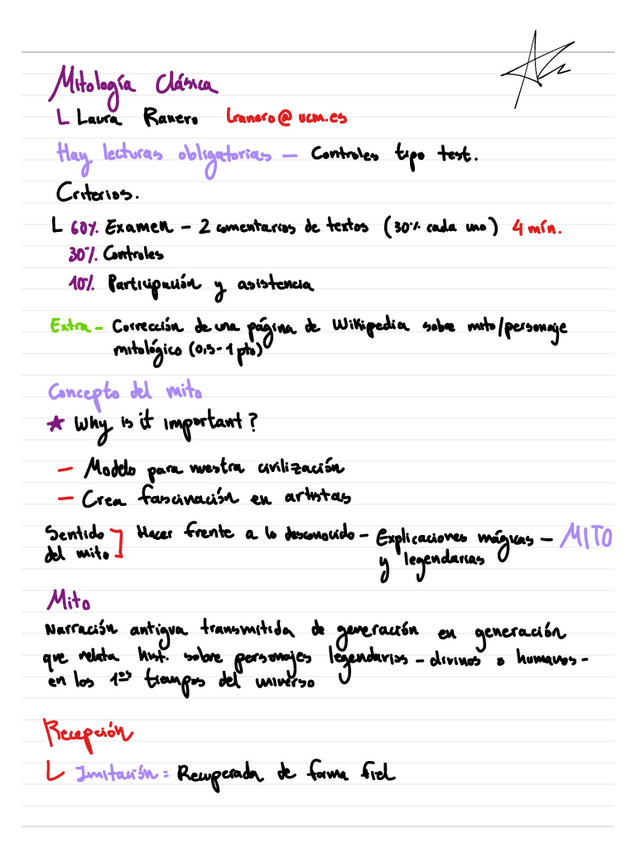 Mitología Clásica
L Laura Ranero lranero@ucm.es
Hay lecturas obligatorias — Controles tipo test.
Criterios.
L 60% Examen - 2 comentarios de textos (30% cada uno) 4 mín.
30% Controles
10% Participación y asistencia
Extra - Corrección de una página de Wikipedia sobre mito/personaje
mitológico (0,5-1 pto)
Concepto del mito
★ Why is it important?
— Modelo para nuestra civilización
— Crea fascinación en artistas
Sentido ] Hacer frente a lo desconocido - Explicaciones mágicas — MITO
del mito y legendarias
Mito
Narración antigua transmitida de generación en generación
que relata hist. sobre personajes legendarios - divinos o humanos -
en los 1ᵒˢ tiempos del universo
Recepción
L Imitación = Recuperada de forma fiel